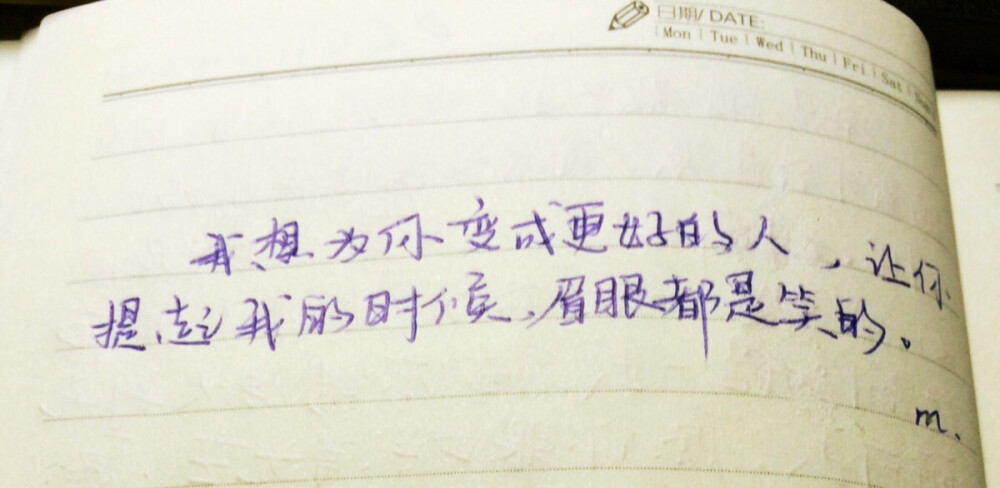 日期/ DATE:
Mon | Tue | Wed | Thu | Fri | Sat |
我想为你变成更好的人，让你
提起我的时候，眉眼都是笑的。
m.